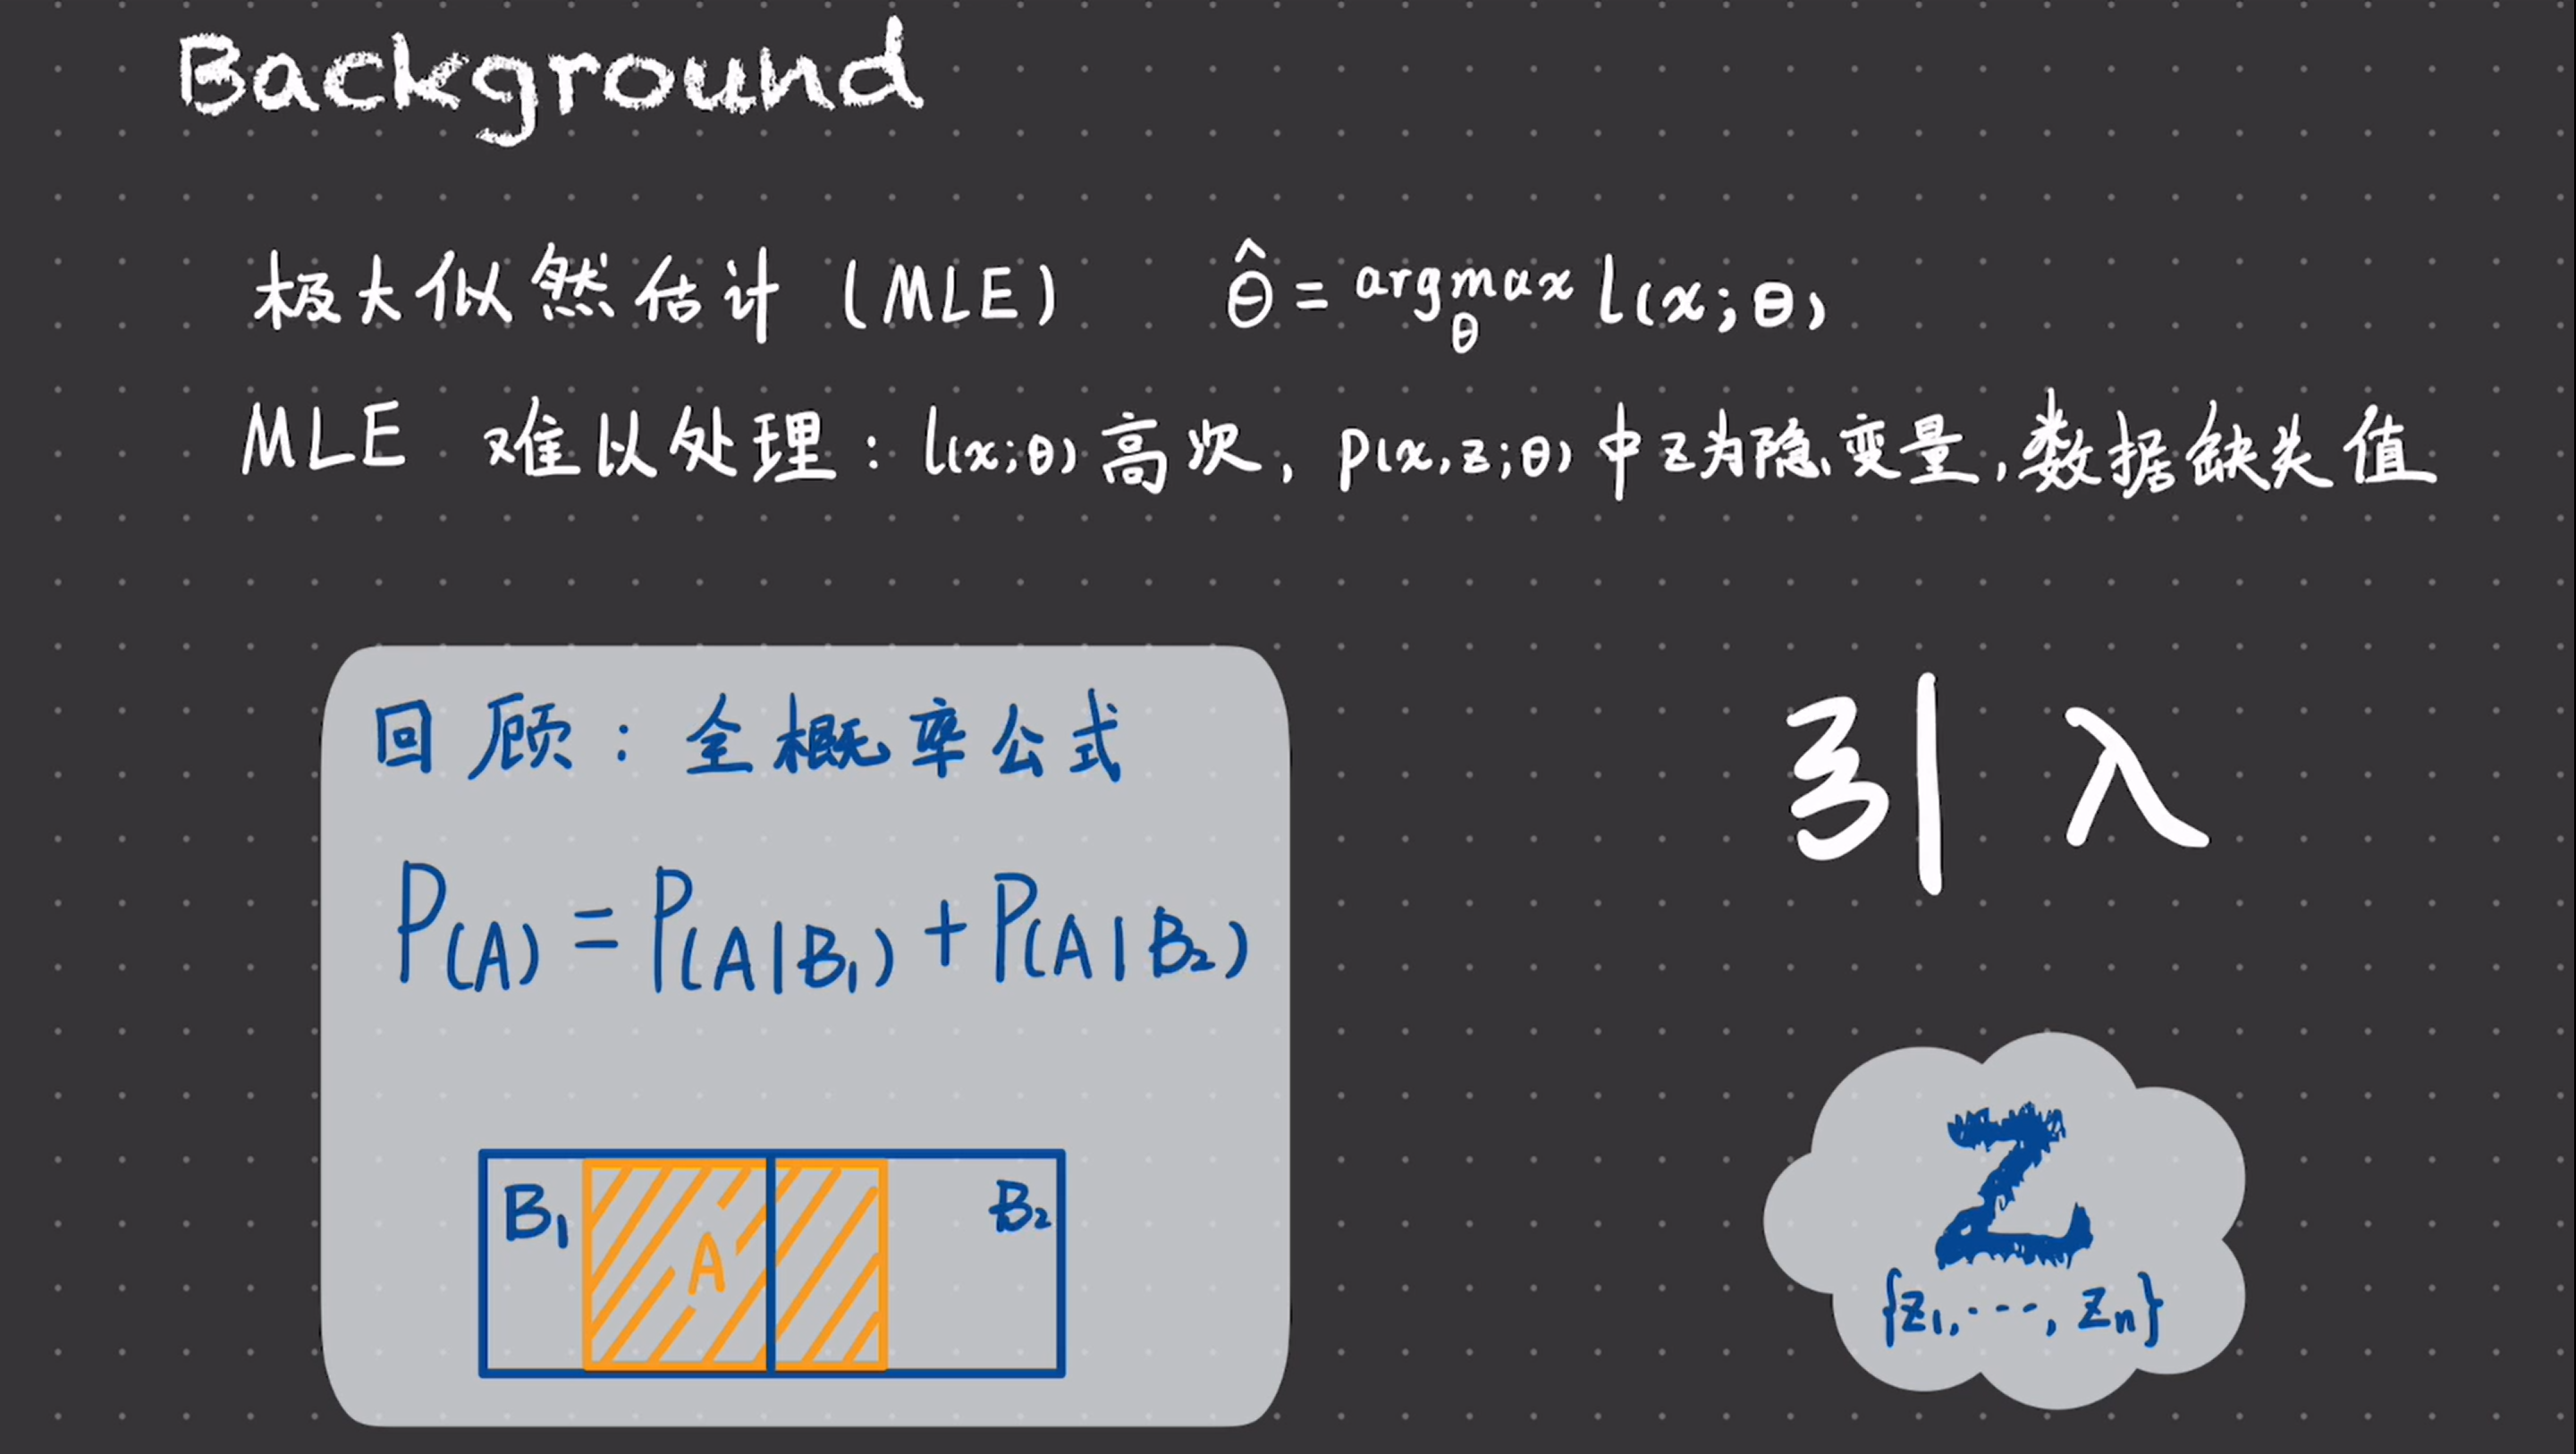 Background
极大似然估计 (MLE) θ̂ = argmax_θ l(x;θ)
MLE 难以处理: l(x;θ) 高次, p(x,z;θ) 中z为隐变量,数据缺失值
回顾: 全概率公式
P(A) = P(A|B₁) + P(A|B₂)
B₁ A B₂
引入
Z
{z₁, ···, zₙ}